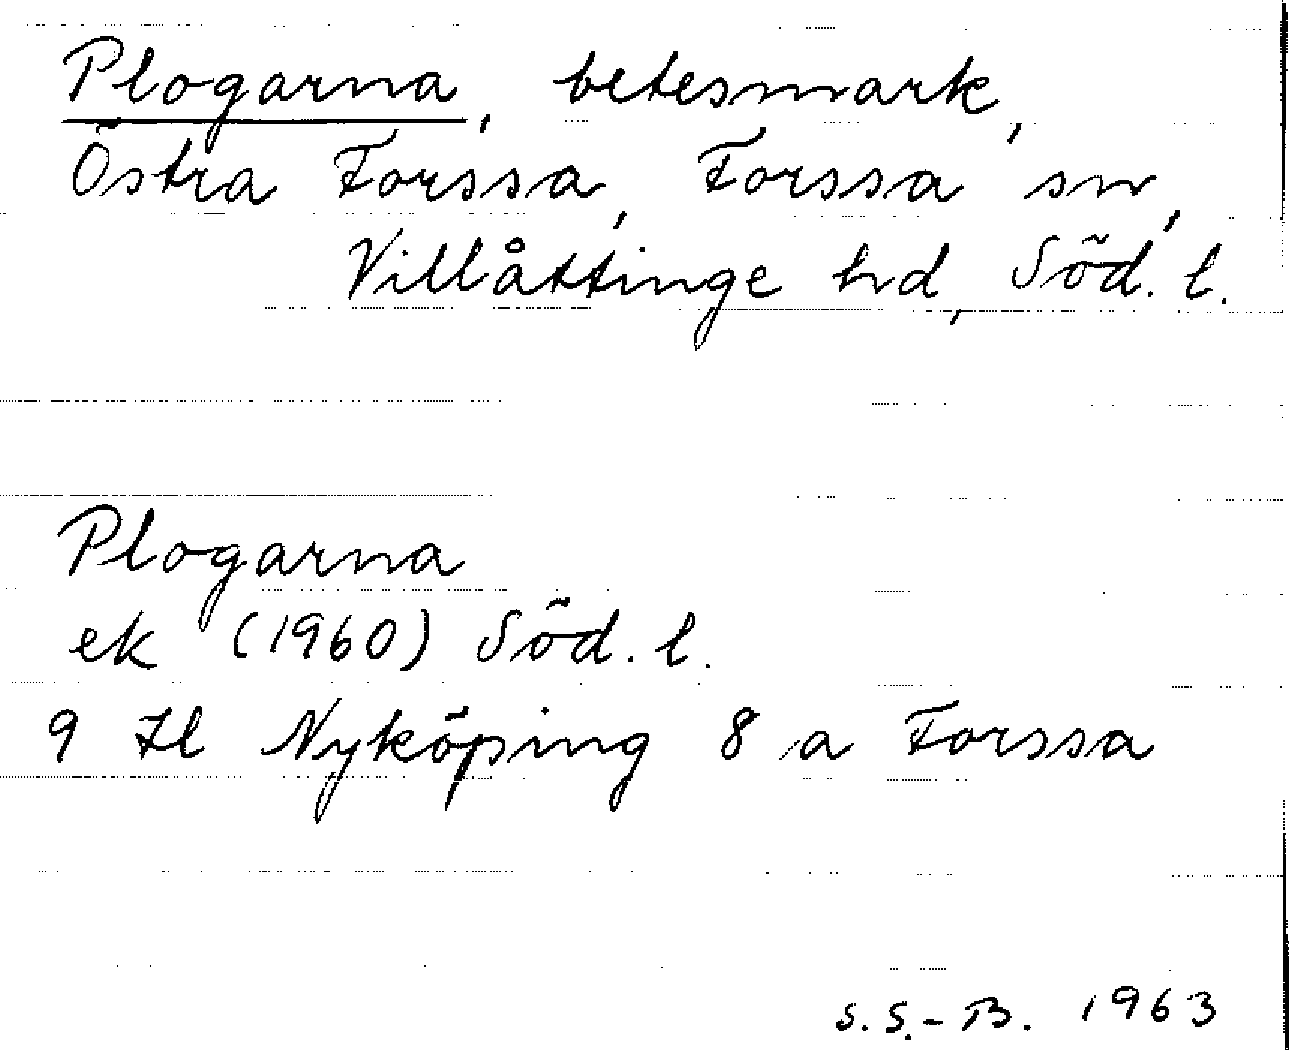 Plogarna, betesmark,
Östra Forssa, Forssa sn,
Villåttinge hd, Söd. l.
Plogarna
ek (1960) Söd. l.
9 Il Nyköping 8 a Forssa
S. S.-B. 1963